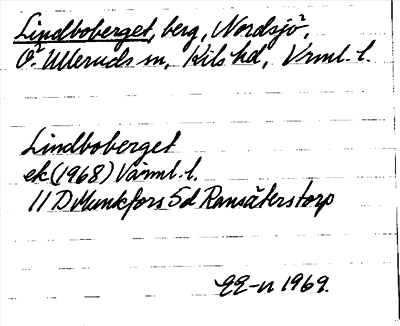 Lindboberget, berg, Nordsjö,
Ö. Ulleruds sn, Kils hd, Vrml. l.
Lindboberget
ek (1968) Värml. l.
11 D Munkfors 5d Ransäterstorp
1969.